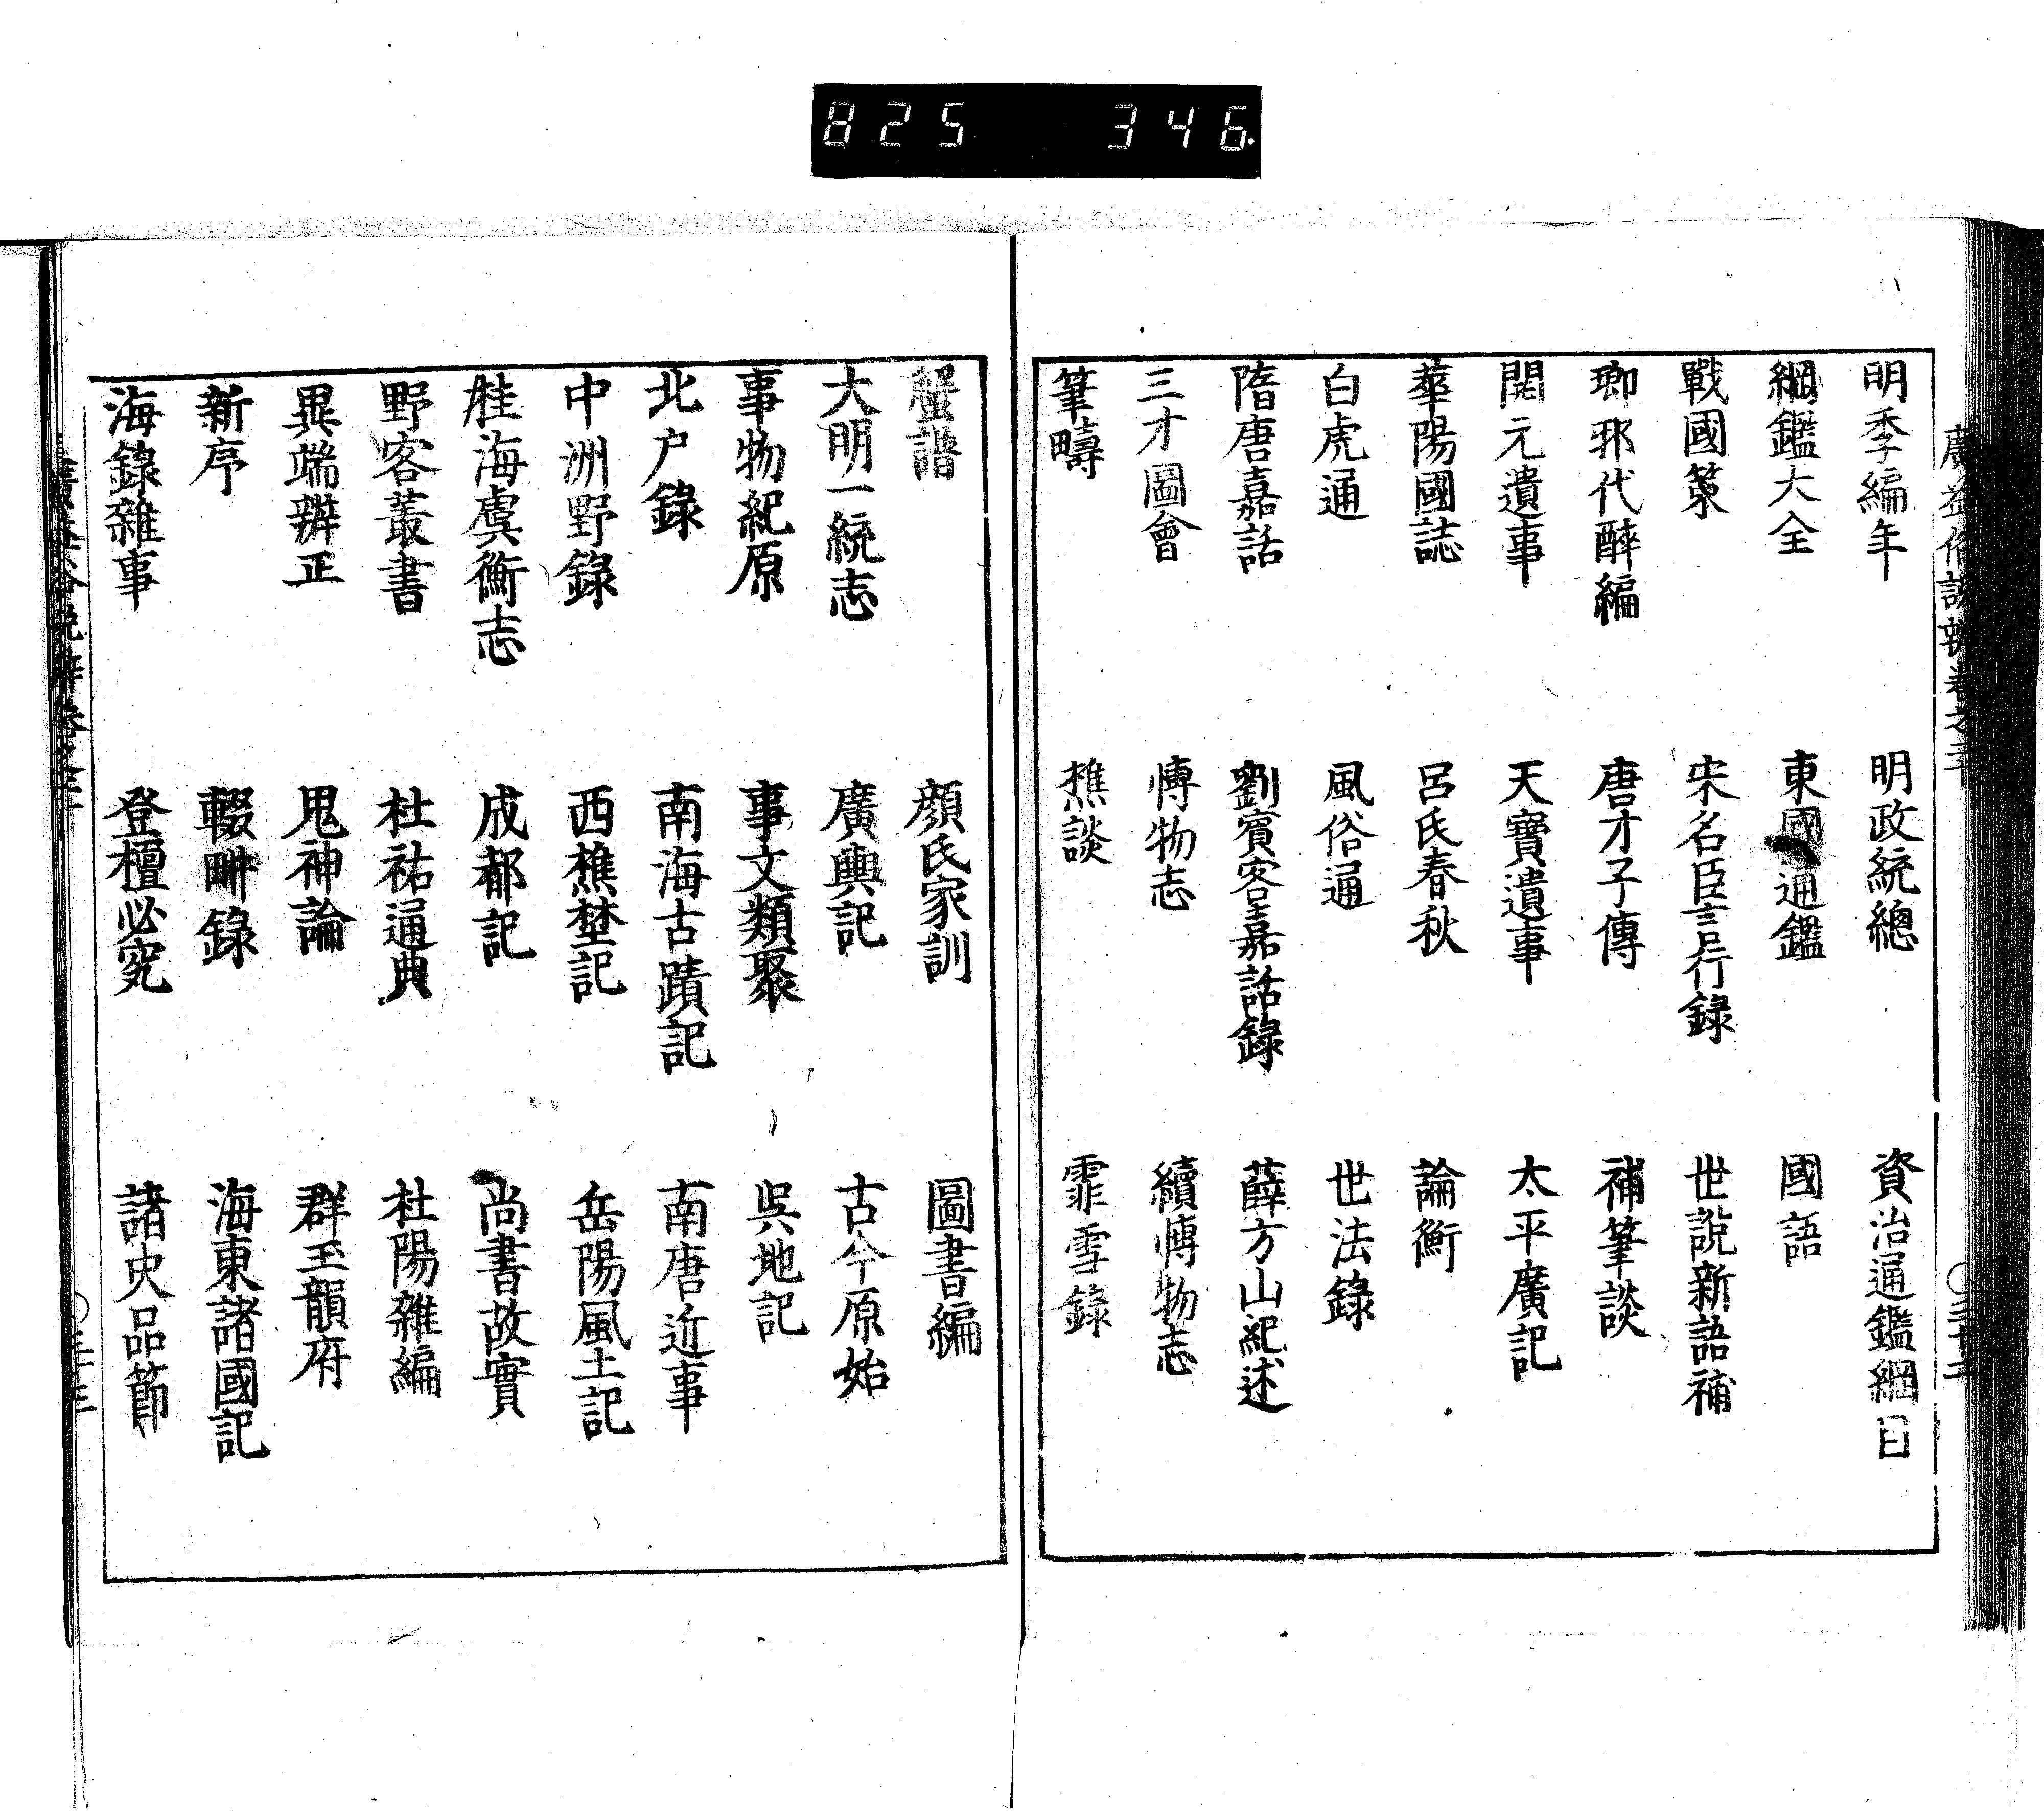 825 346
明季編年 明政統總 資治通鑑綱目
綱鑑大全 東國通鑑 國語
戰國策 宋名臣言行錄 世説新語補
瑯邪代醉編 唐才子傳 補筆談
開元遺事 天寶遺事 太平廣記
華陽國誌 呂氏春秋 論衡
白虎通 風俗通 世法錄
隋唐嘉話 劉賓客嘉話錄 薛方山紀述
三才圖會 博物志 續博物志
筆疇 樵談 霏雪錄
蟹譜 顏氏家訓 圖書編
大明一統志 廣輿記 古今原始
事物紀原 事文類聚 吳地記
北户錄 南海古蹟記 南唐近事
中洲野錄 西樵埜記 岳陽風土記
桂海虞衡志 成都記 尚書故實
野客叢書 杜祐通典 杜陽雜編
異端辨正 鬼神論 群玉韻府
新序 輟畊錄 海東諸國記
海錄雜事 登壇必究 諸史品節